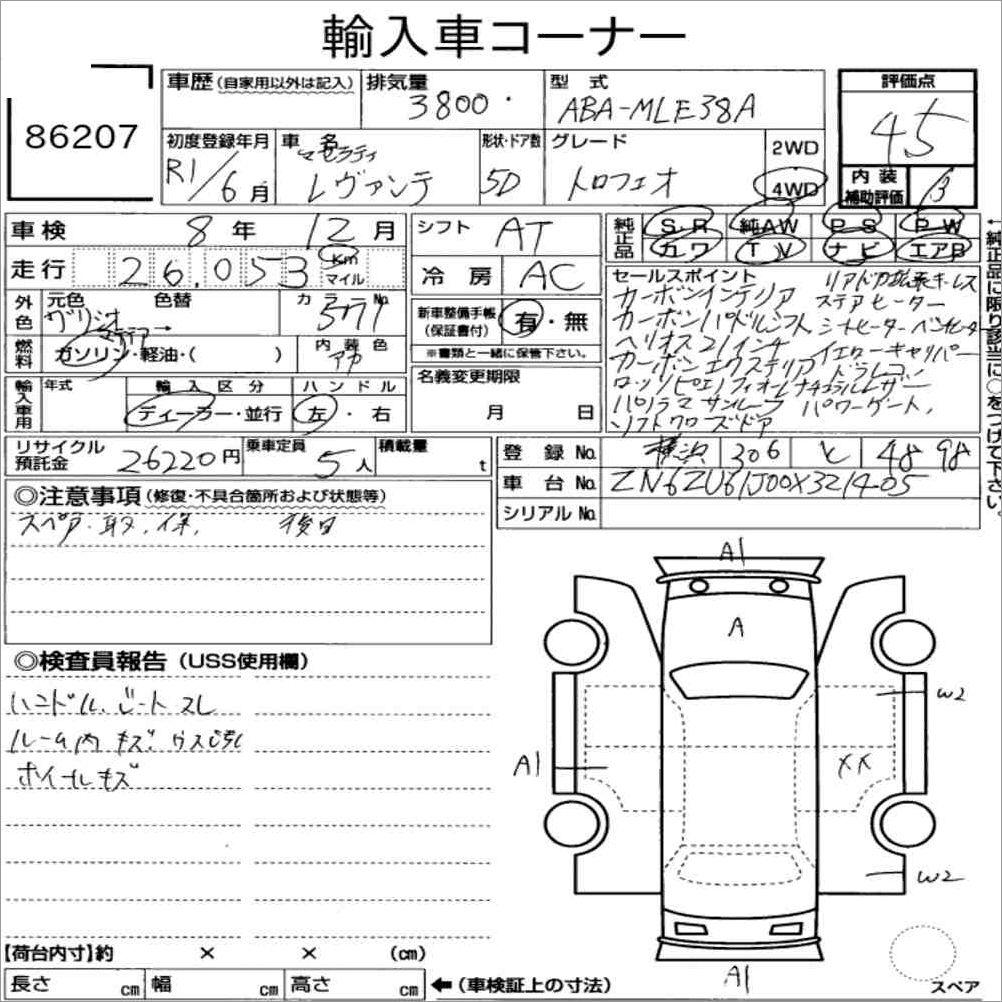 輸入車コーナー
86207
車歴(自家用以外は記入) 排気量 型式 評価点
3800 ABA-MLE38A 45
初度登録年月 車名 形状・ドア数 グレード 2WD
R1/6月 マセラティ レヴァンテ 5D トロフェオ 4WD
内装補助評価 B
車検 8年 12月 シフト AT
走行 26,053 Km マイル 冷房 AC
純正品 S・R 純AW P・S P・W
カワ T V ナビ エアB
外色 元色 色替 カラーNo.
グリジオ
燃料 ガソリン・軽油・( ) 内装色 アカ
新車整備手帳(保証書付) 有・無
※書類と一緒に保管下さい。
輸入車用 年式 輸入区分 ハンドル
ディーラー・並行 左・右
名義変更期限
月 日
セールスポイント
カーボンインテリア リアドア拡張キーレス
カーボンパドルシフト ステアヒーター
シートヒーター ベンチレーター
ヘリオス21インチ イエローキャリパー
カーボンエクステリア ドラレコ
ロッソ(ピエノフィオーレナチュラルレザー
パノラマサンルーフ パワーゲート,
ソフトクローズドア
←純正品に限り該当に○をつけて下さい。
リサイクル預託金 26220円 乗車定員 5人 積載量 t
登録No. 横浜 306 と 4898
車台No. ZN6ZU61J00X321405
シリアルNo.
◎注意事項(修復・不具合箇所および状態等)
スペア・取,保, 後日
◎検査員報告(USS使用欄)
ハンドル、シートスレ
ルーム内キズ
ホイールキズ
A1
A
W2
A1
XX
W2
A1
【荷台内寸】約 × × (cm)
長さ cm 幅 cm 高さ cm ←(車検証上の寸法)
スペア